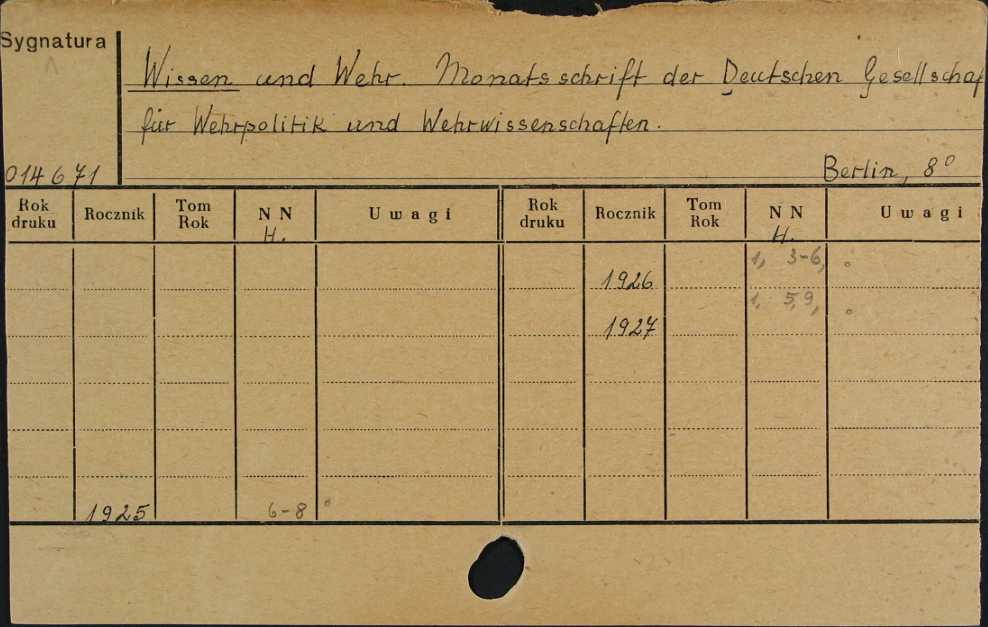 Sygnatura
Wissen und Wehr. Monatsschrift der Deutschen Gesellschaf
für Wehrpolitik und Wehrwissenschaften.
014671
Berlin, 8°
Rok druku Rocznik Tom Rok NN H. Uwagi Rok druku Rocznik Tom Rok NN H. Uwagi
1926 1, 3-6,
1927 1, 5, 9,
1925 6-8